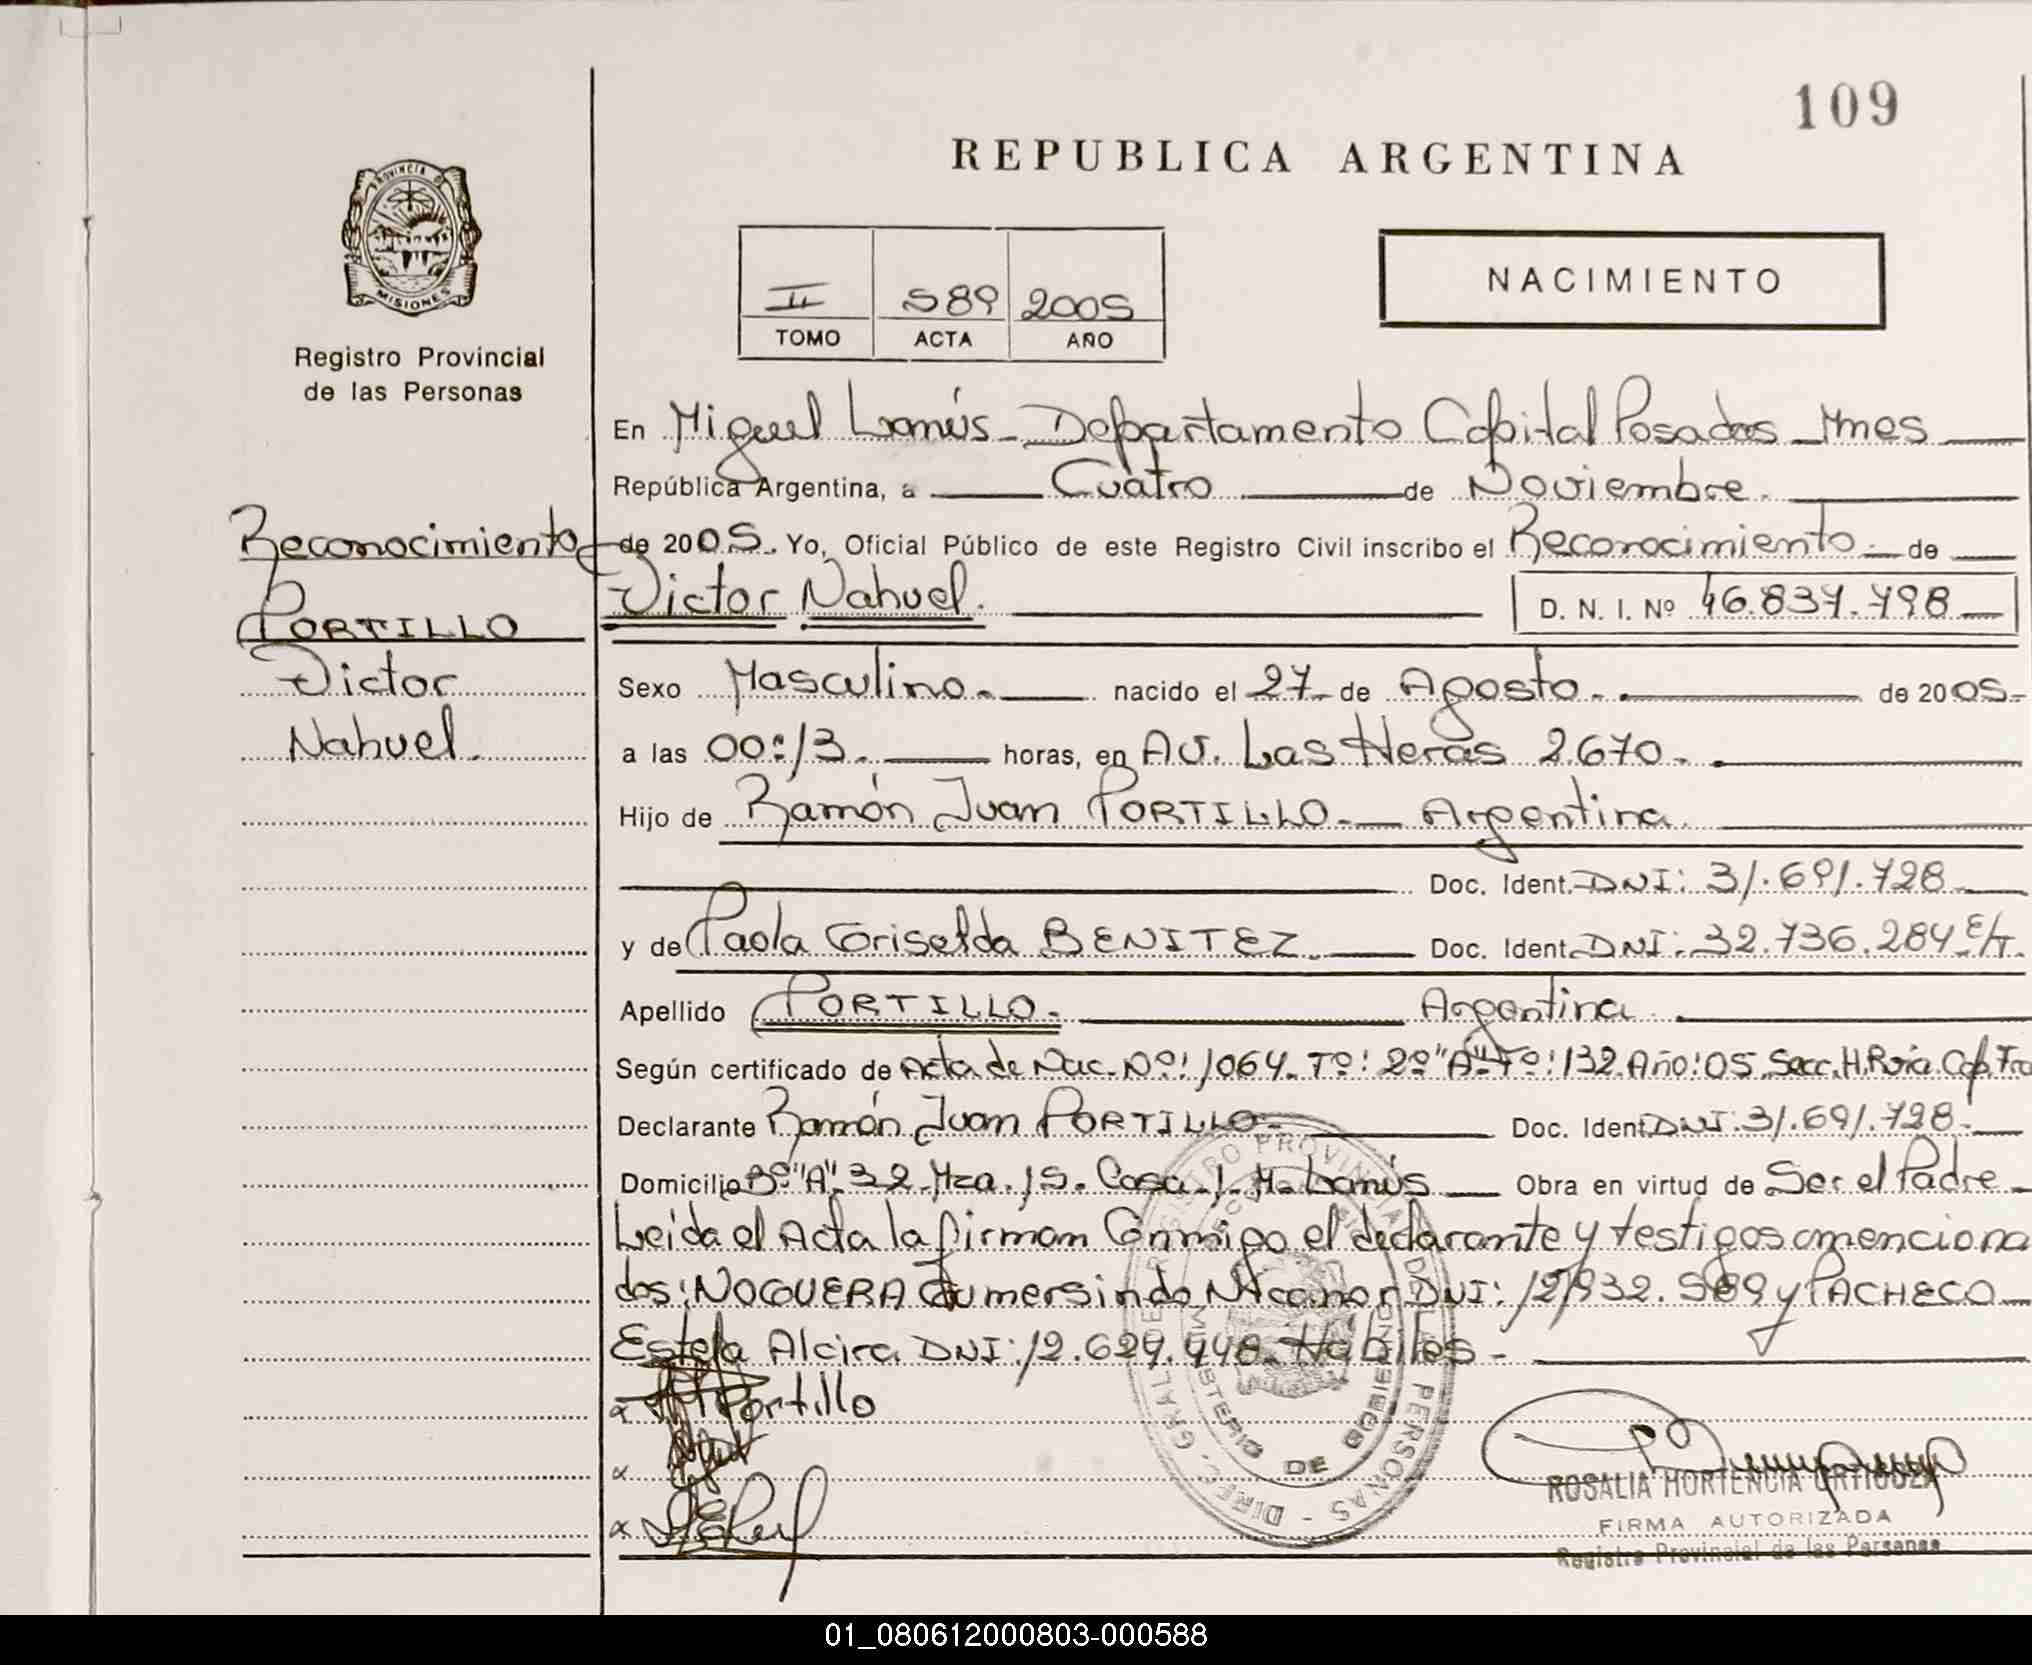 109
REPUBLICA ARGENTINA
PROVINCIA DE
MISIONES
Registro Provincial
de las Personas
II 589 2005
TOMO ACTA AÑO
NACIMIENTO
En Miguel Lanús - Departamento Capital Posadas Mnes
República Argentina, a Cuatro de Noviembre.
Reconocimiento
de 2005. Yo, Oficial Público de este Registro Civil inscribo el Reconocimiento de
PORTILLO
Victor Nahuel. D. N. I. Nº 46.837.798
Victor
Sexo Masculino. nacido el 27 de Agosto. de 2005.
Nahuel.
a las 00:13. horas, en Av. Las Heras 2670.
Hijo de Ramón Juan PORTILLO. Argentina.
Doc. Ident. DNI: 31.691.728
y de Paola Griselda BENITEZ. Doc. Ident. DNI: 32.736.284 E/T.
Apellido PORTILLO. Argentina.
Según certificado de Acta de Nac. Nº: 1064. Tº: 2º "A" Fº: 132 Año: 05. Secc. H. Rpia. Cap.
Declarante Ramón Juan PORTILLO Doc. Ident DNI: 31.691.728.
Domicilio Bº "A" 32 Mza. 15. Casa 1 M. Lanús Obra en virtud de Ser el Padre
Leida el Acta la firman Conmigo el declarante y testigos amenciona
dos: NOGUERA Gumersindo Nicanor DNI: 12.932.589 y PACHECO
Estela Alcira DNI: 12.629.448. Hábiles.
x Portillo
x
x
REGISTRO PROVINCIAL DE LAS PERSONAS - DIREC. GRAL. DE
MINISTERIO DE GOBIERNO
ROSALIA HORTENCIA ORTIGOZA
FIRMA AUTORIZADA
Registro Provincial de las Personas
01_080612000803-000588